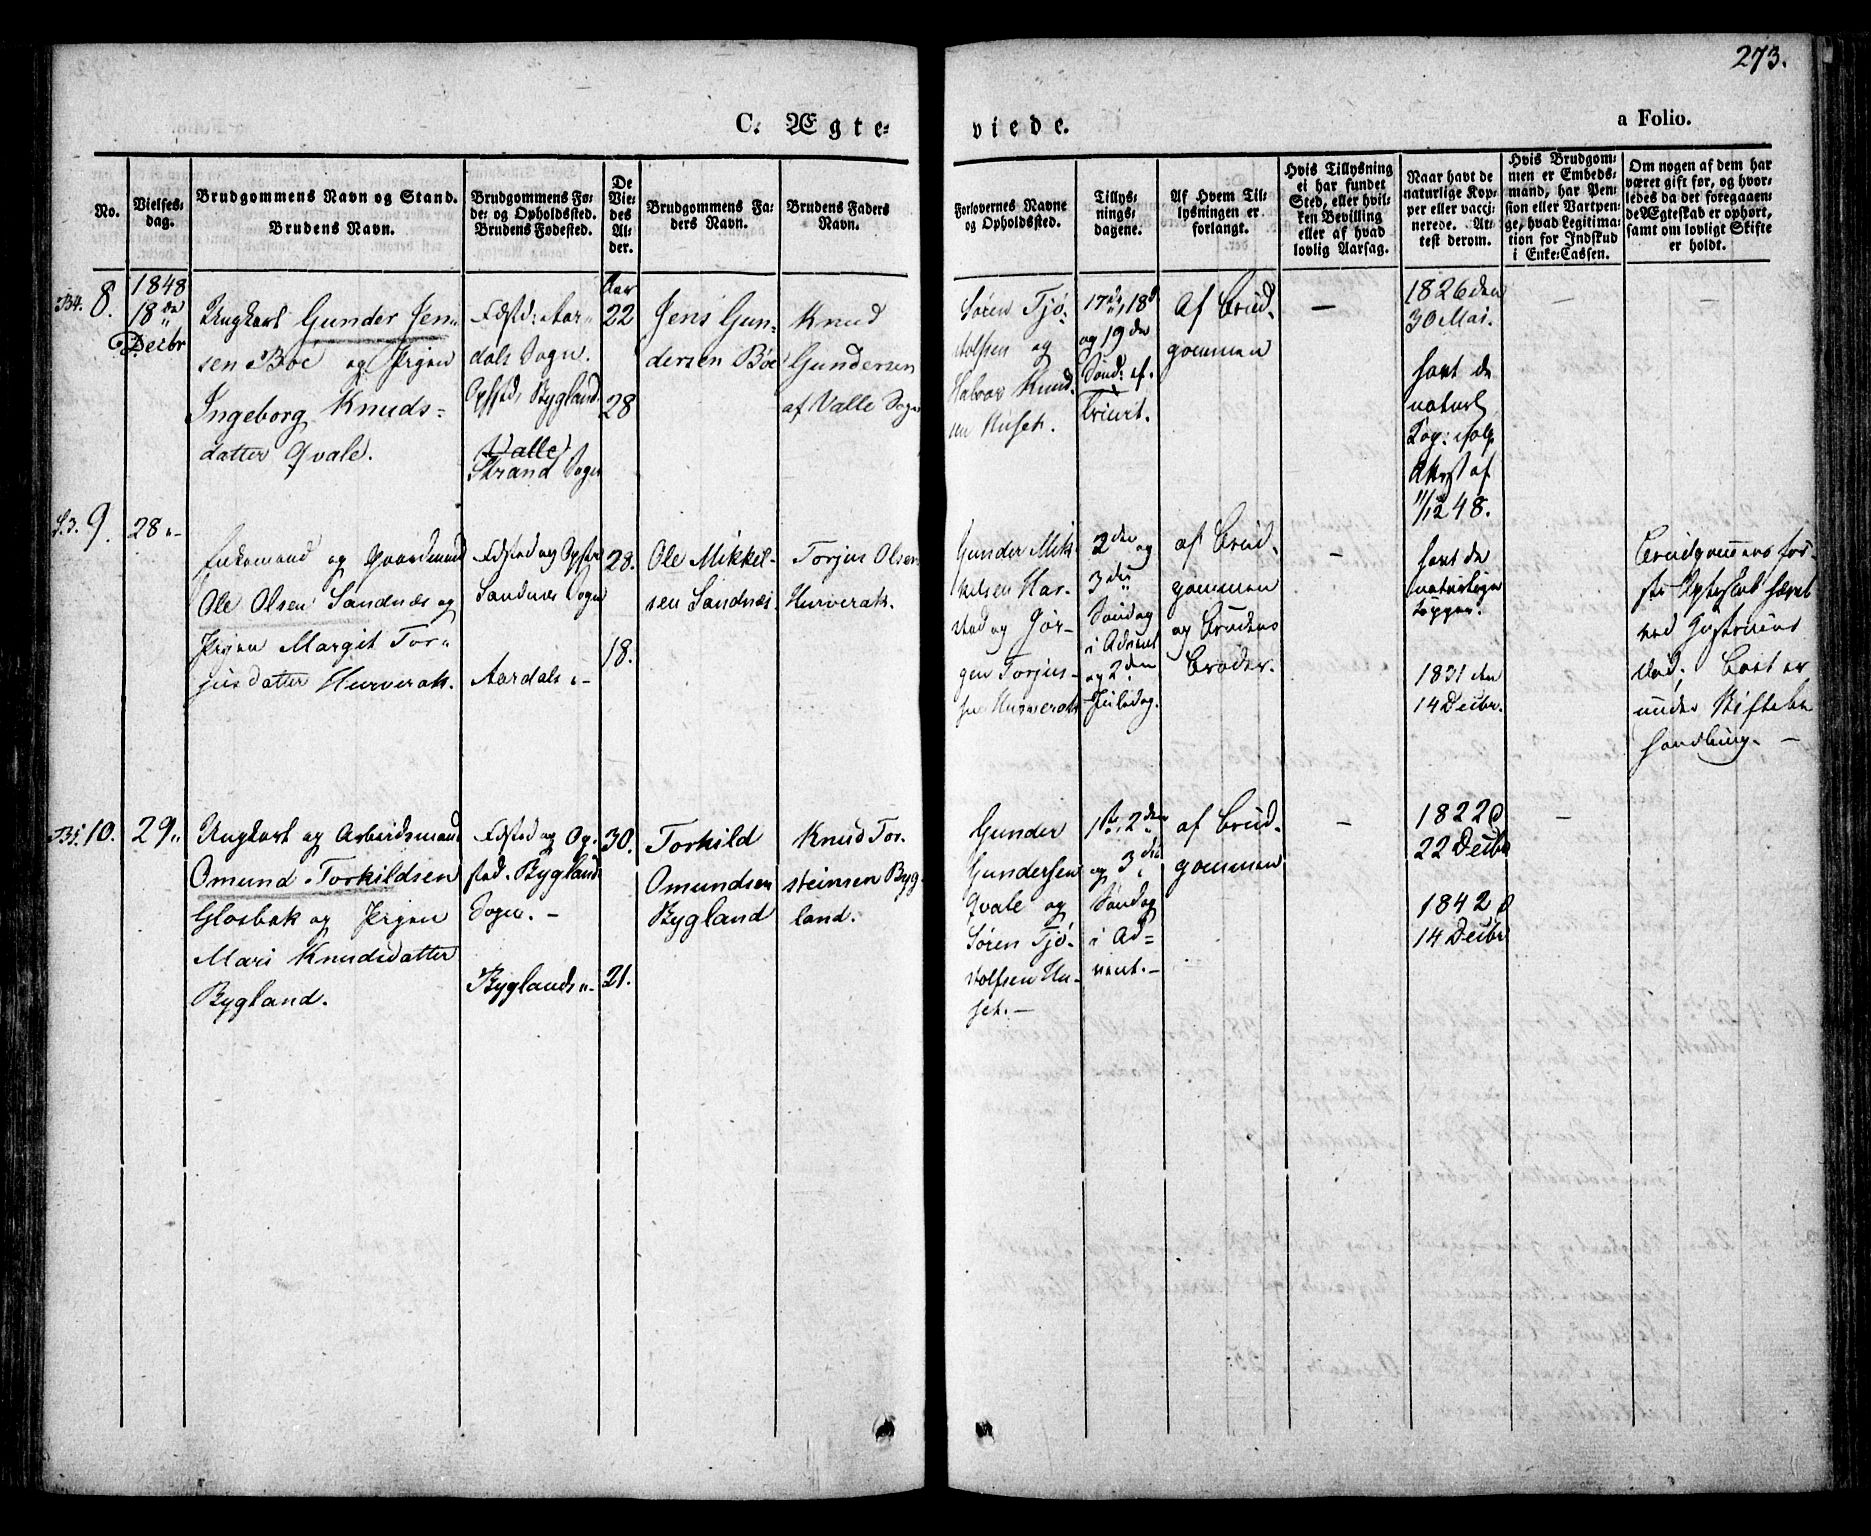 273.
C. Ægte-
viede.
a Folio.
No.
Vielses-
dag.
Brudgommens Navn og Stand.
Brudens Navn.
Brudgommens Fø-
de- og Opholdssted.
Brudens Fødested.
De
Vie-
des
Al-
der.
Brudgommens Fa-
ders Navn.
Brudens Faders
Navn.
Forlovernes Navne
og Opholdssted.
Tillys-
nings-
dagene.
Af Hvem Til-
lysningen er
forlangt.
Hvis Tillysning
ei har fundet
Sted, eller hvil-
ken Bevilling
eller af hvad
lovlig Aarsag.
Naar havt de
naturlige Kop-
per eller vacci-
nerede. At-
test derom.
Hvis Brudgom-
men er Embeds-
mand, har Pen-
sion eller Vartpen-
ge, hvad Legitima-
tion for Indskud
i Enke-Cassen.
Om nogen af dem har
været gift før, og hvor-
ledes da det foregaaen-
de Ægteskab er ophørt,
samt om lovligt Skifte
er holdt.
B4. 8.
1848
18de
Decbr
Ungkarl Gunder Jen-
sen Bøe og Pigen
Ingeborg Knuds-
datter Qvale.
Fødsted: Aar-
dals Sogn.
Opsted, Bygland
Valle
Strand Sogn
Aar
22
28
Jens Gun-
dersen Bøe
Knud
Gundersen
af Valle Sogn
Søren Tjø-
stolfsen og
Halvor Knud-
sen Huset.
17de, 18d
og 19de
Sønd: ef.
Trinit.
Af Brud-
gommen
—
1826 den
30 Mai.
havt de
naturl
Kop: ifølg
Attest af
11/12 48.
—
S.3. 9.
28 "-
Enkemand og Gaardmand
Ole Olsen Sandnæs og
Pigen Margit Tor-
jusdatter Hurverak.
Fødsted og Opsted
Sandnæs Sogn
Aardals "-
28.
18.
Ole Mikkel-
sen Sandnæs
Torjus Olsen
Hurverak.
Gunder Mik-
kelsen Har-
stad og Jør-
gen Torjus-
sen Hurverak
2den og
3die
Søndag
i Advent
og 2den
Juledag.
af Brud-
gommen
og Brudens
Broder.
—
havt de
naturlige
Kopper.
1831 den
14 Decbr.
Brudgommens før-
ste Ægteskab hævet
ved Hustruens
Død; Boet er
under Skiftebe
handling. —
B5. 10.
29 "
Ungkarl og Arbeidsmand
Omund Torkildsen
Glosbak og Pigen
Mari Knudsdatter
Bygland.
Fødsted og Op-
sted. Bygland
Sogn. —
Byglands "-
30.
21.
Torkild
Omundsen
Bygland
Knud Tor-
steinsen Byg
land.
Gunder
Gundersen
Qvale og
Søren Tjø-
stolfsen Hu-
set. —
1ste, 2den
og 3die
Søndag
i Ad-
vent. —
af Brud-
gommen
—
1822 d
22 Decbr
1842 d
14 Decbr
—